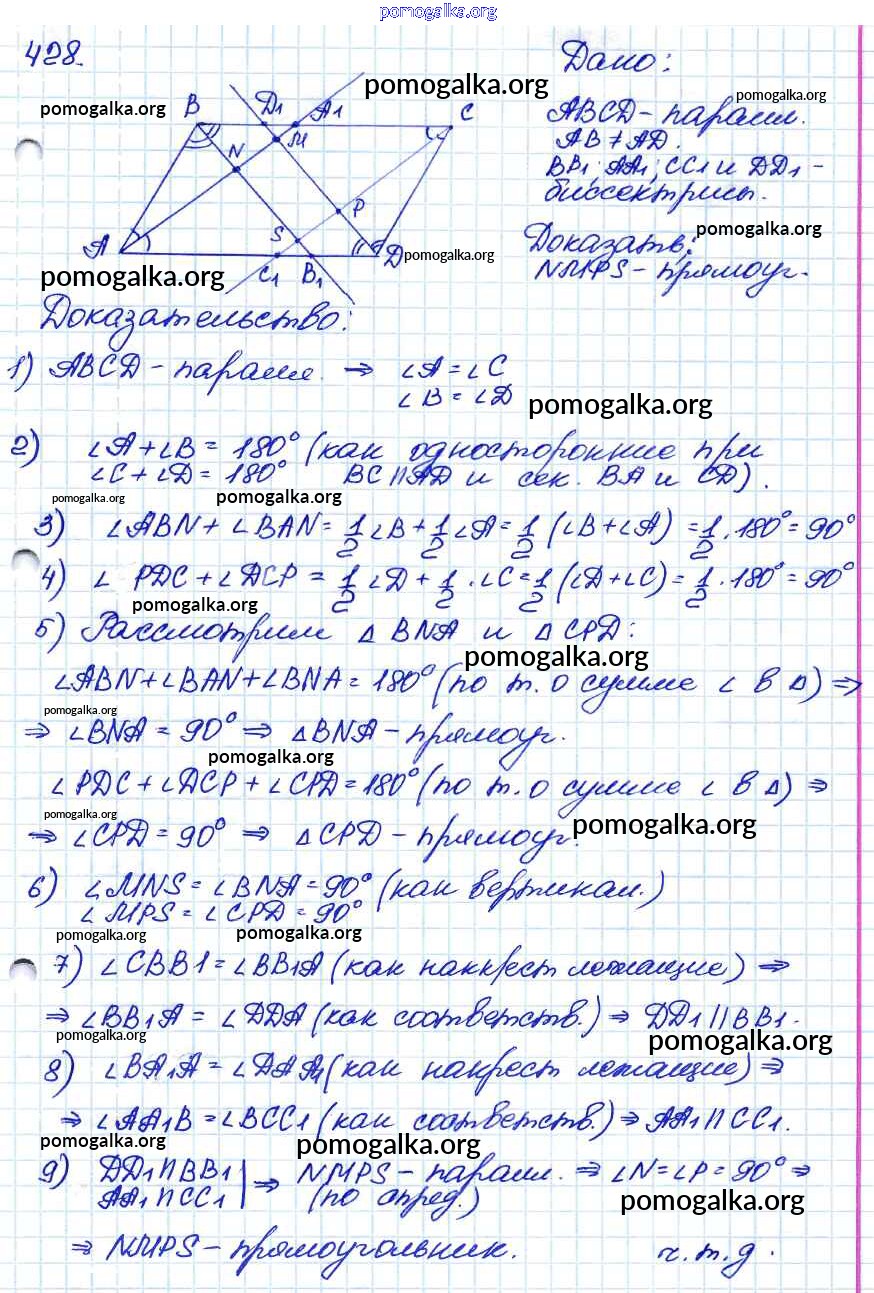 pomogalka.org
428.
Дано:
pomogalka.org
pomogalka.org
pomogalka.org
B D1 A1 C
M
N
P
S
A C1 B1 D
ABCD - паралл.
AB ≠ AD.
BB1; AA1; CC1 и DD1 -
биссектрисы.
pomogalka.org
Доказать:
NMPS - прямоуг.
pomogalka.org
pomogalka.org
Доказательство:
1) ABCD - паралл. ⇒ ∠A = ∠C
∠B = ∠D
pomogalka.org
2) ∠A + ∠B = 180° (как односторонние при
∠C + ∠D = 180° BC || AD и сек. BA и CD).
pomogalka.org
pomogalka.org
3) ∠ABN + ∠BAN = 1/2 ∠B + 1/2 ∠A = 1/2 (∠B + ∠A) = 1/2 · 180° = 90°
4) ∠ PDC + ∠DCP = 1/2 ∠D + 1/2 · ∠C = 1/2 (∠D + ∠C) = 1/2 · 180° = 90°
pomogalka.org
5) Рассмотрим △ BNA и △ CPD:
pomogalka.org
∠ABN + ∠BAN + ∠BNA = 180° (по т. о сумме ∠ в △) ⇒
pomogalka.org
⇒ ∠BNA = 90° ⇒ △BNA - прямоуг.
pomogalka.org
∠PDC + ∠DCP + ∠CPD = 180° (по т. о сумме ∠ в △) ⇒
pomogalka.org
⇒ ∠CPD = 90° ⇒ △CPD - прямоуг.
pomogalka.org
6) ∠MNS = ∠BNA = 90° (как вертикал.)
∠MPS = ∠CPD = 90°
pomogalka.org
pomogalka.org
7) ∠CBB1 = ∠BB1A (как накрест лежащие) ⇒
⇒ ∠BB1A = ∠DDA (как соответств.) ⇒ DD1 || BB1.
pomogalka.org
pomogalka.org
8) ∠BA1A = ∠DAA1 (как накрест лежащие) ⇒
⇒ ∠AA1B = ∠BCC1 (как соответств.) ⇒ AA1 || CC1.
pomogalka.org
pomogalka.org
9) DD1 || BB1
AA1 || CC1 | ⇒ NMPS - паралл. ⇒ ∠N = ∠P = 90° ⇒
(по опред.)
pomogalka.org
⇒ NMPS - прямоугольник. ч.т.д.